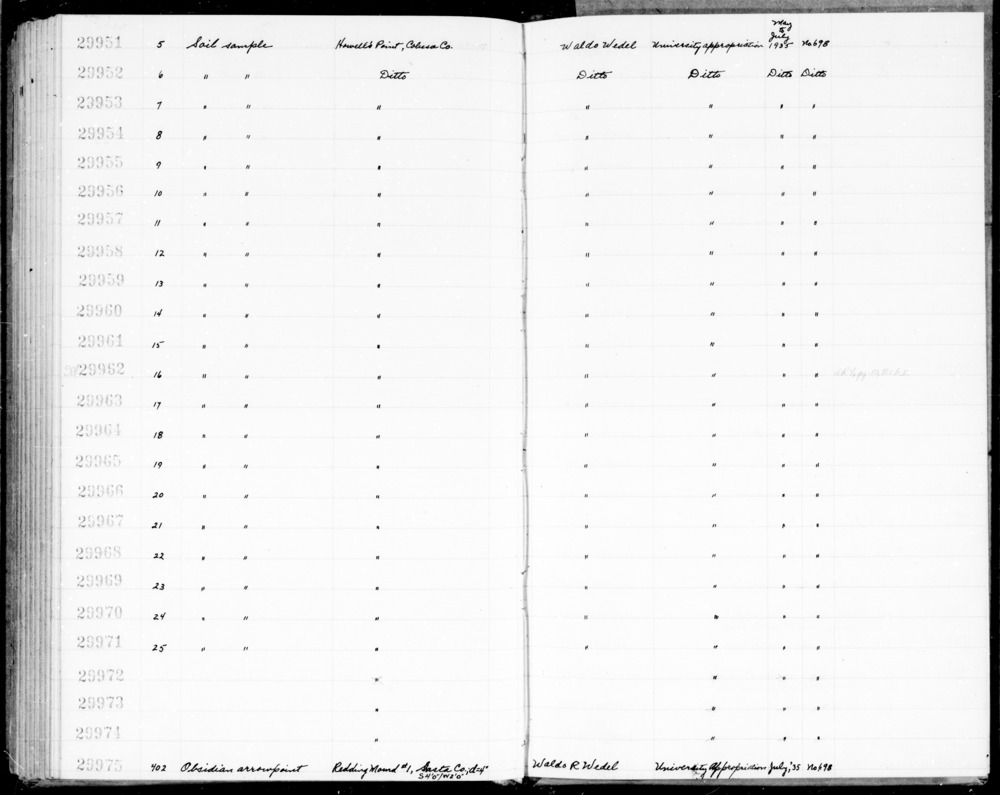 May
to
July
29951 5 Soil sample Howell's Point, Colusa Co. Waldo Wedel University appropriation 1935 No 698
29952 6 " " Ditto Ditto Ditto Ditto Ditto
23953 7 " " " " " " "
29954 8 " " " " " " "
29955 9 " " " " " " "
29956 10 " " " " " " "
29957 11 " " " " " " "
29958 12 " " " " " " "
29959 13 " " " " " " "
29960 14 " " " " " " "
29961 15 " " " " " " "
29962 16 " " " " " " "
29963 17 " " " " " " "
29964 18 " " " " " " "
29965 19 " " " " " " "
29966 20 " " " " " " "
29967 21 " " " " " " "
29968 22 " " " " " " "
29969 23 " " " " " " "
29970 24 " " " " " " "
29971 25 " " " " " " "
29972 " " " "
29973 " " " "
29974 " " " "
29975 402 Obsidian arrowpoint Redding Mound #1, Sasta Co., d-4" Waldo R. Wedel University Appropriation July, '35 No 698
S4'0"/W2'0"